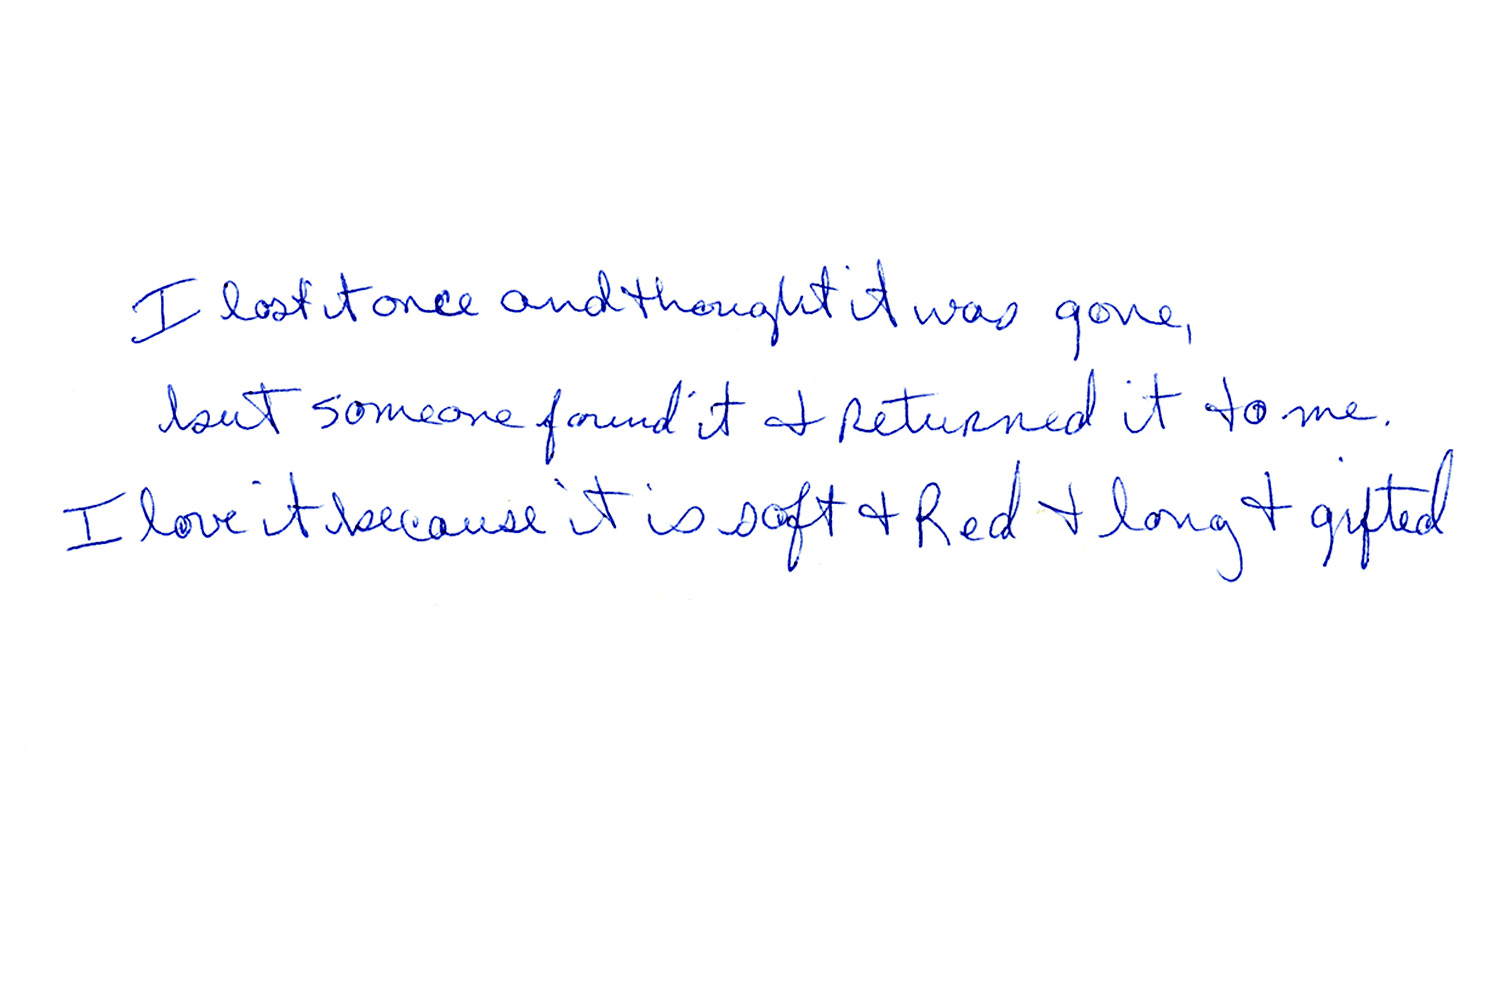 I lost it once and thought it was gone,
but someone found it & Returned it to me.
I love it because it is soft & Red & long & gifted